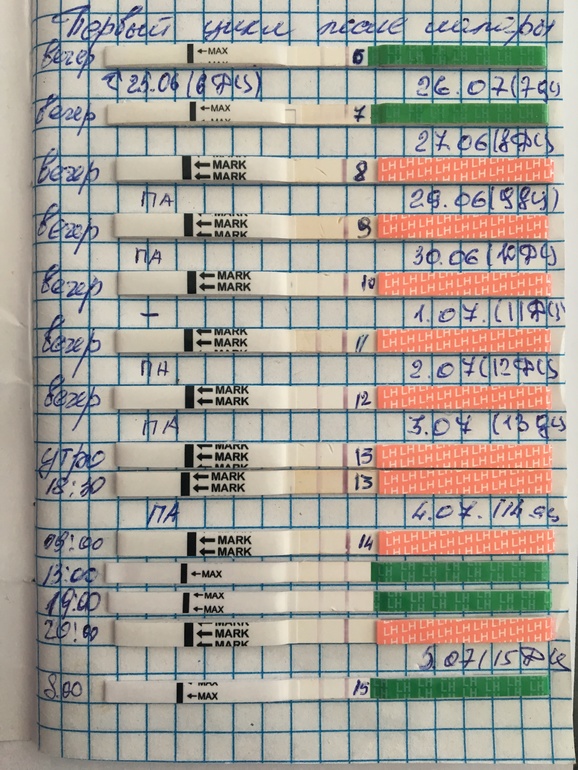 Первый цикл после
вечер ←MAX 6
25.06 (6 дц) 26.07 (7 дц
вечер ←MAX 7
27.06 (8 дц
вечер ←MARK ←MARK 8 LH LH LH LH LH
ПА 29.06 (9 дц)
вечер ←MARK ←MARK 9 LH LH LH LH LH
ПА 30.06 (10 дц
вечер ←MARK ←MARK 10 LH LH LH LH LH
– 1.07. (11 дц
вечер ←MARK ←MARK 11 LH LH LH LH LH
ПА 2.07 (12 дц
вечер ←MARK ←MARK 12 LH LH LH LH LH
ПА 3.07 (13 дц
утро ←MARK ←MARK 13 LH LH LH LH LH
18:30 ←MARK ←MARK 13 LH LH LH LH LH
ПА 4.07. (14 дц
09:00 ←MARK ←MARK 14 LH LH LH LH LH
13:00 ←MAX
19:00 ←MAX ←MAX
20:00 ←MARK ←MARK LH LH LH LH LH
5.07 (15 дц
8.00 ←MAX 15